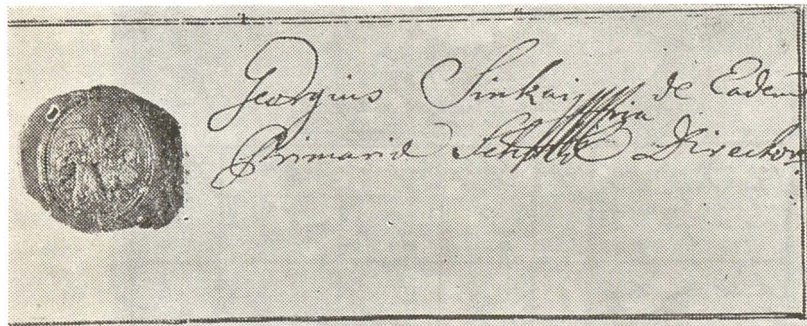 Georgius Sinkai de Eadem
Primariæ Scholæ Director